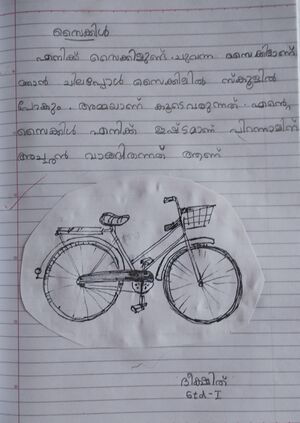 സൈക്കിൾ
എനിക്ക് സൈക്കിളുണ്ട്. ചുവന്ന സൈക്കിളാണ്
ഞാൻ ചിലപ്പോൾ സൈക്കിളിൽ സ്കൂളിൽ
പോകും. അമ്മയാണ് കൂടെവരുന്നത്. എന്റെ
സൈക്കിൾ എനിക്ക് ഇഷ്ടമാണ് പിറന്നാളിന്
അച്ഛൻ വാങ്ങിതന്നത് ആണ്
Std-I